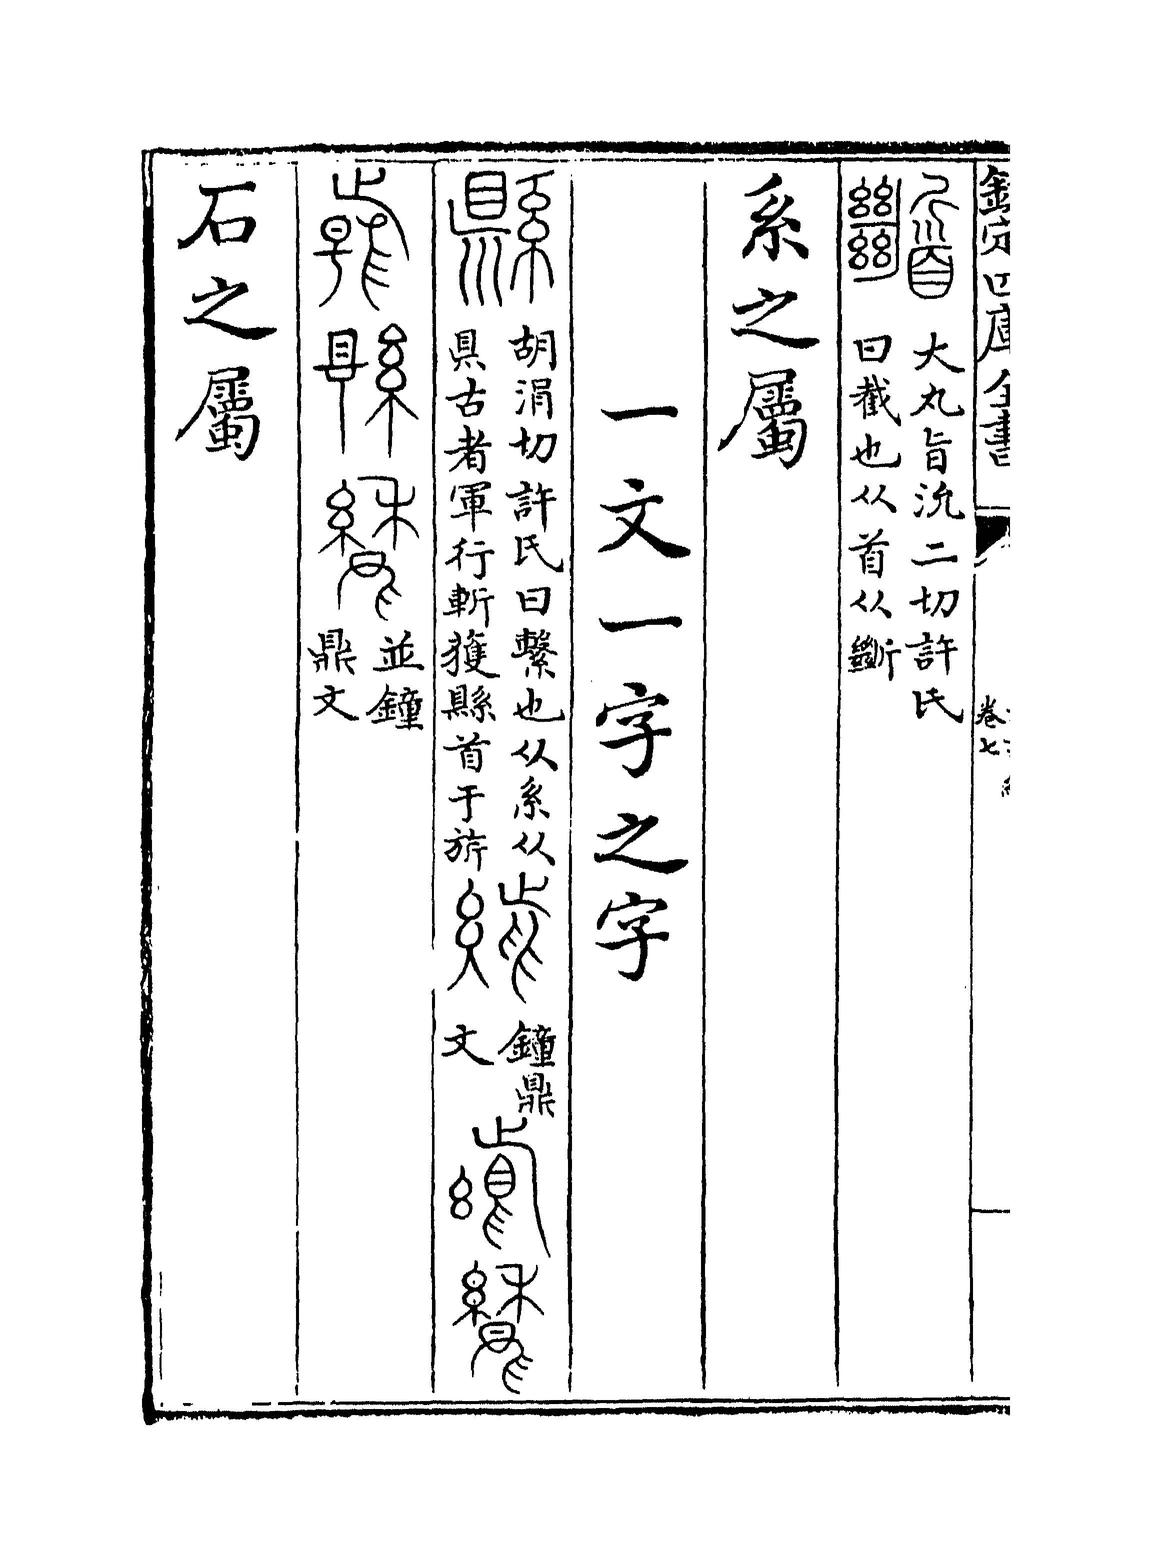 欽定四庫全書
卷七
大丸旨沇二切許氏
曰截也从首从斷
系之屬
一文一字之字
縣
胡涓切許氏曰繫也从系从
県古者軍行斬獲縣首于旂
鐘鼎
文
並鐘
鼎文
石之屬